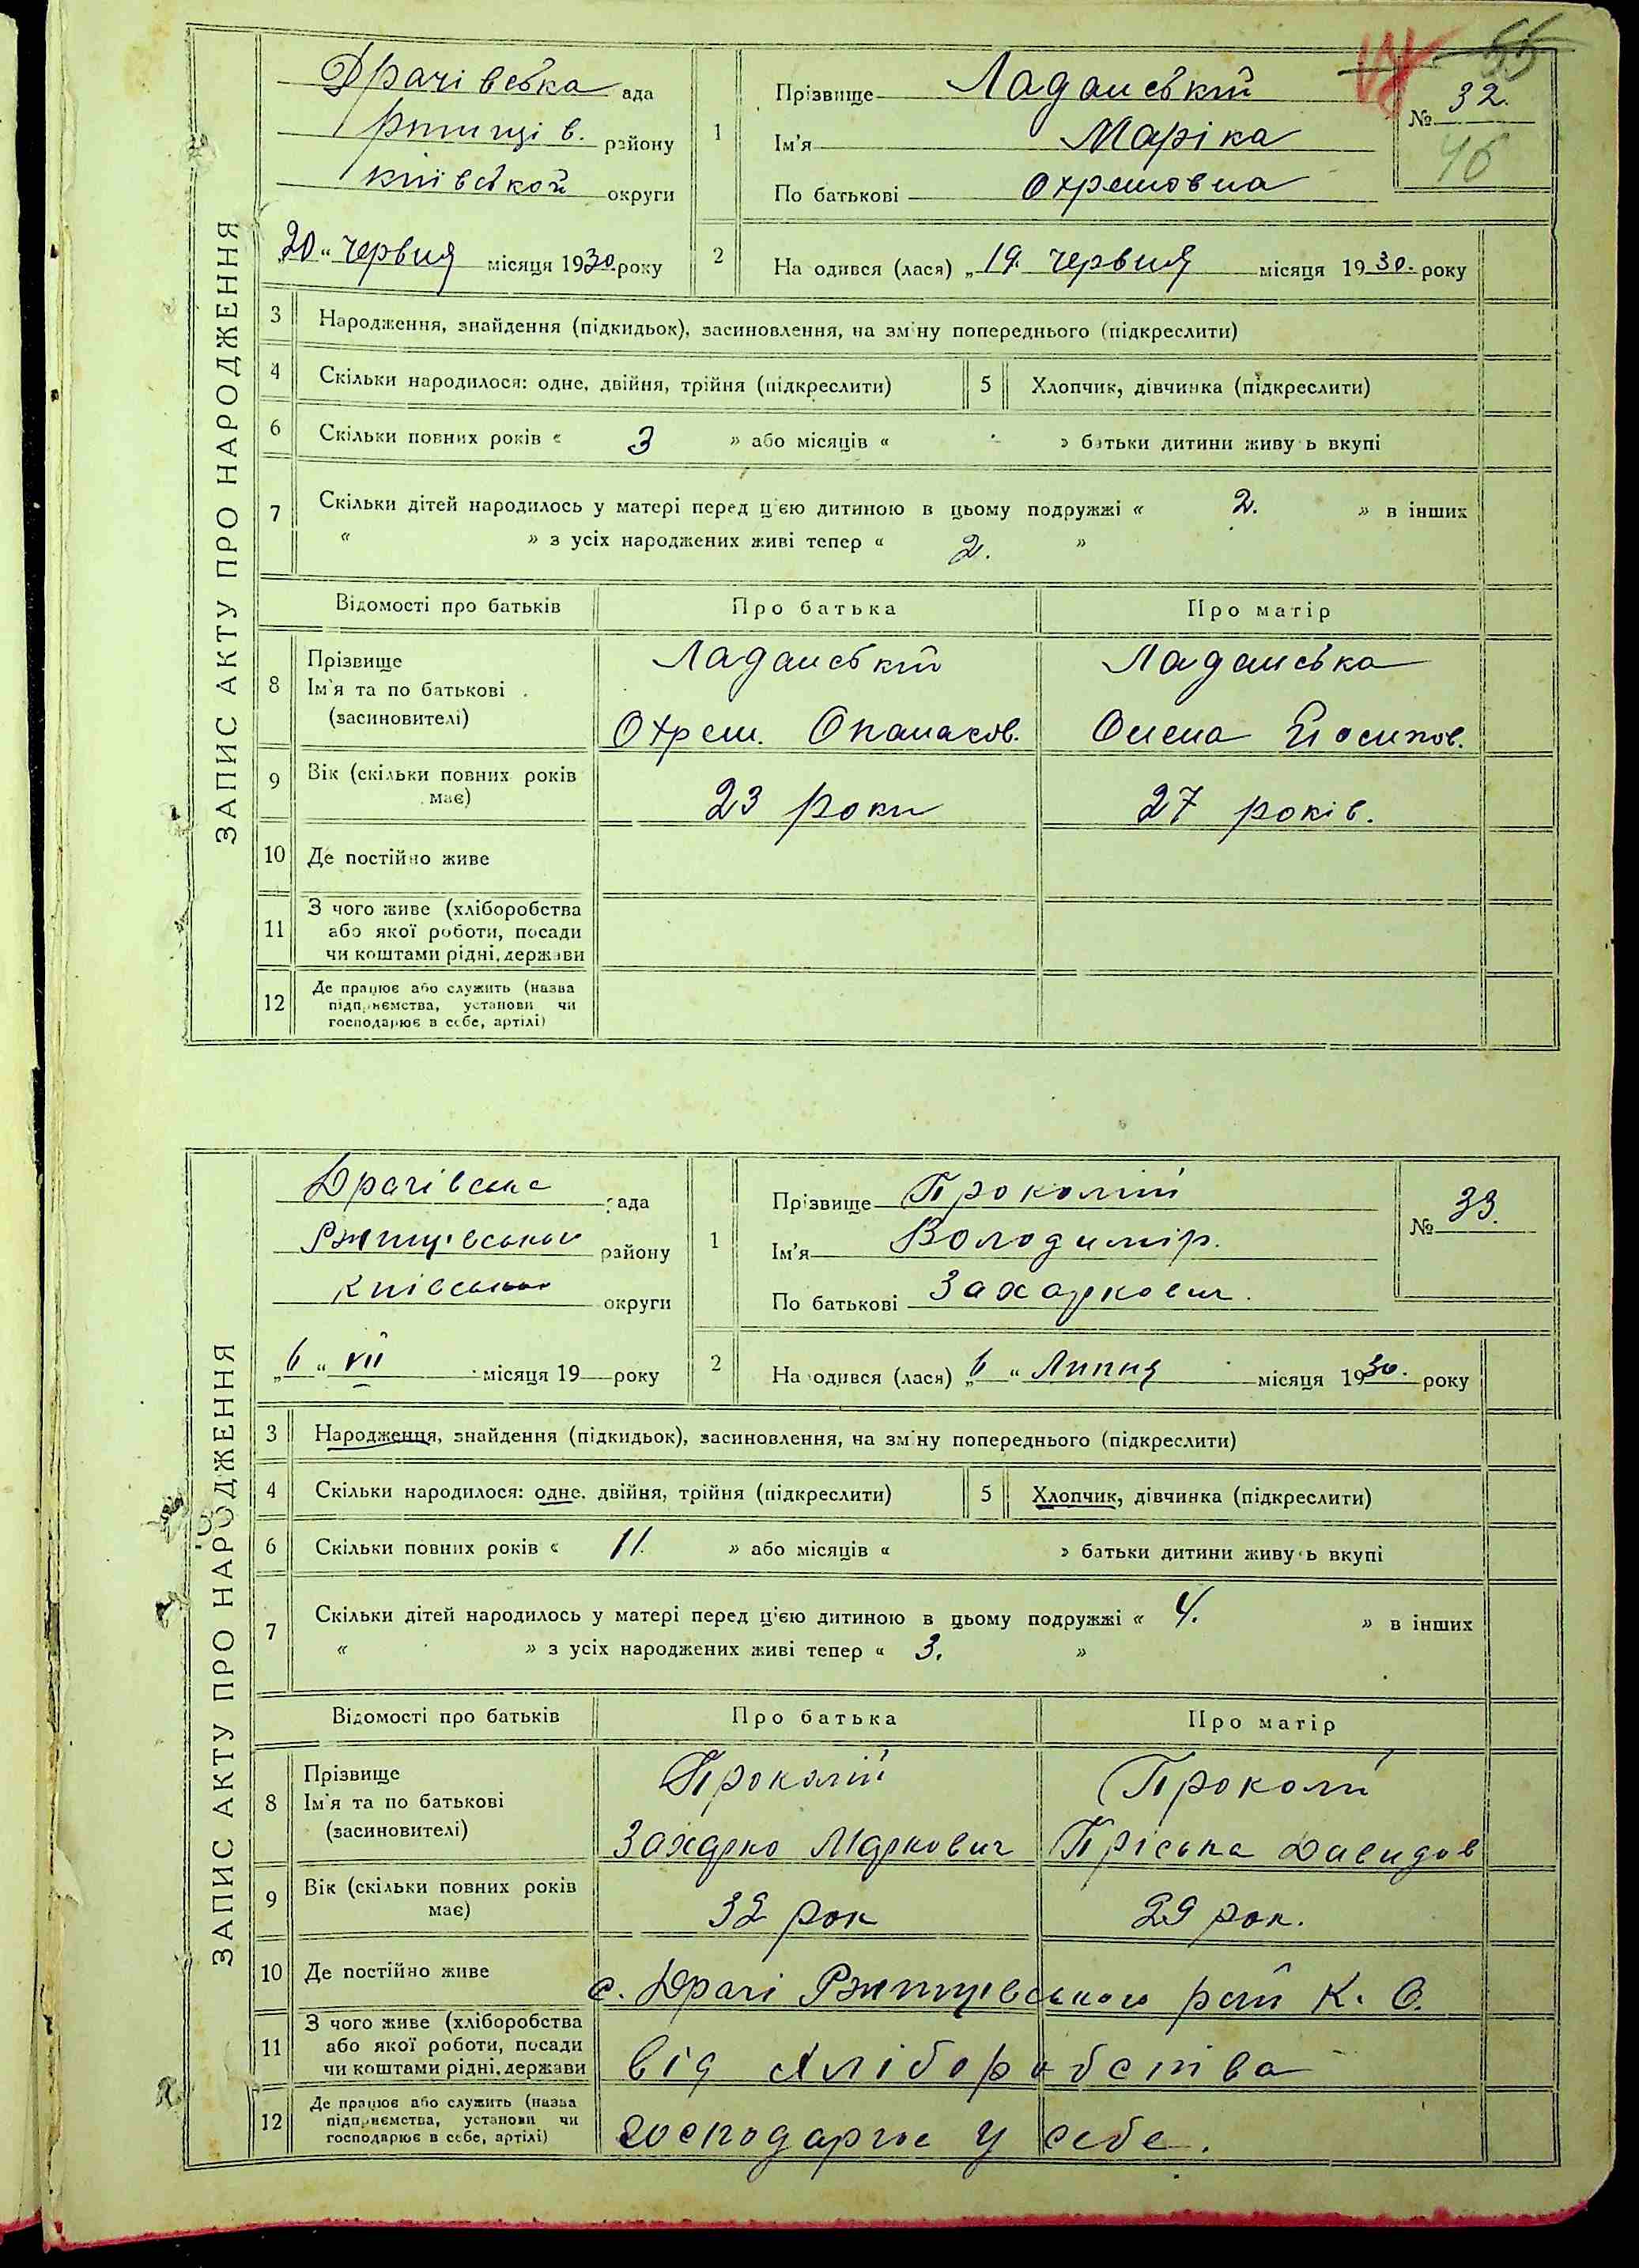 55
Драчівська рада
Ржищів. району
Київської округи
№ 32.
46
1 Прізвище Ладанський
Ім'я Маріка
По батькові Охремовна
„20" червня місяця 1930. року
2 На одився (лася) „19. червня місяця 1930. року
ЗАПИС АКТУ ПРО НАРОДЖЕННЯ
3 Народження, знайдення (підкидьок), засиновлення, на зміну попереднього (підкреслити)
4 Скільки народилося: одне, двійня, трійня (підкреслити) 5 Хлопчик, дівчинка (підкреслити)
6 Скільки повних років « 3 » або місяців « - » батьки дитини живуть вкупі
7 Скільки дітей народилось у матері перед ц'єю дитиною в цьому подружжі « 2. » в інших
« » з усіх народжених живі тепер « 2. »
Відомості про батьків Про батька Про матір
8 Прізвище Ладанський Ладанська
Ім'я та по батькові
(засновителі) Охрем. Опанасов. Олена Йосипов.
9 Вік (скільки повних років
має) 23 роки 27 років.
10 Де постійно живе
11 З чого живе (хліборобства
або якої роботи, посади
чи коштами рідні, держави
12 Де працює або служить (назва
підприємства, установи чи
господарює в себе, артілі)
Драчівська рада
Ржищівського району
Київської округи
№ 33.
1 Прізвище Проколій
Ім'я Володимір.
По батькові Захаркович.
„6" VII місяця 19 року
2 На одився (лася) „6" Липня місяця 1930. року
ЗАПИС АКТУ ПРО НАРОДЖЕННЯ
3 Народження, знайдення (підкидьок), засиновлення, на зміну попереднього (підкреслити)
4 Скільки народилося: одне, двійня, трійня (підкреслити) 5 Хлопчик, дівчинка (підкреслити)
6 Скільки повних років « 11. » або місяців « » батьки дитини живуть вкупі
7 Скільки дітей народилось у матері перед ц'єю дитиною в цьому подружжі « 4. » в інших
« » з усіх народжених живі тепер « 3. »
Відомості про батьків Про батька Про матір
8 Прізвище Проколій Проколій
Ім'я та по батькові
(засиновителі) Захарко Маркович Пріська Давидов
9 Вік (скільки повних років
має) 32 рок 29 рок.
10 Де постійно живе с. Драчі Ржищівського рай К. О.
11 З чого живе (хліборобства
або якої роботи, посади
чи коштами рідні, держави від хліборобства
12 Де працює або служить (назва
підприємства, установи чи
господарює в себе, артілі) господарює у себе.